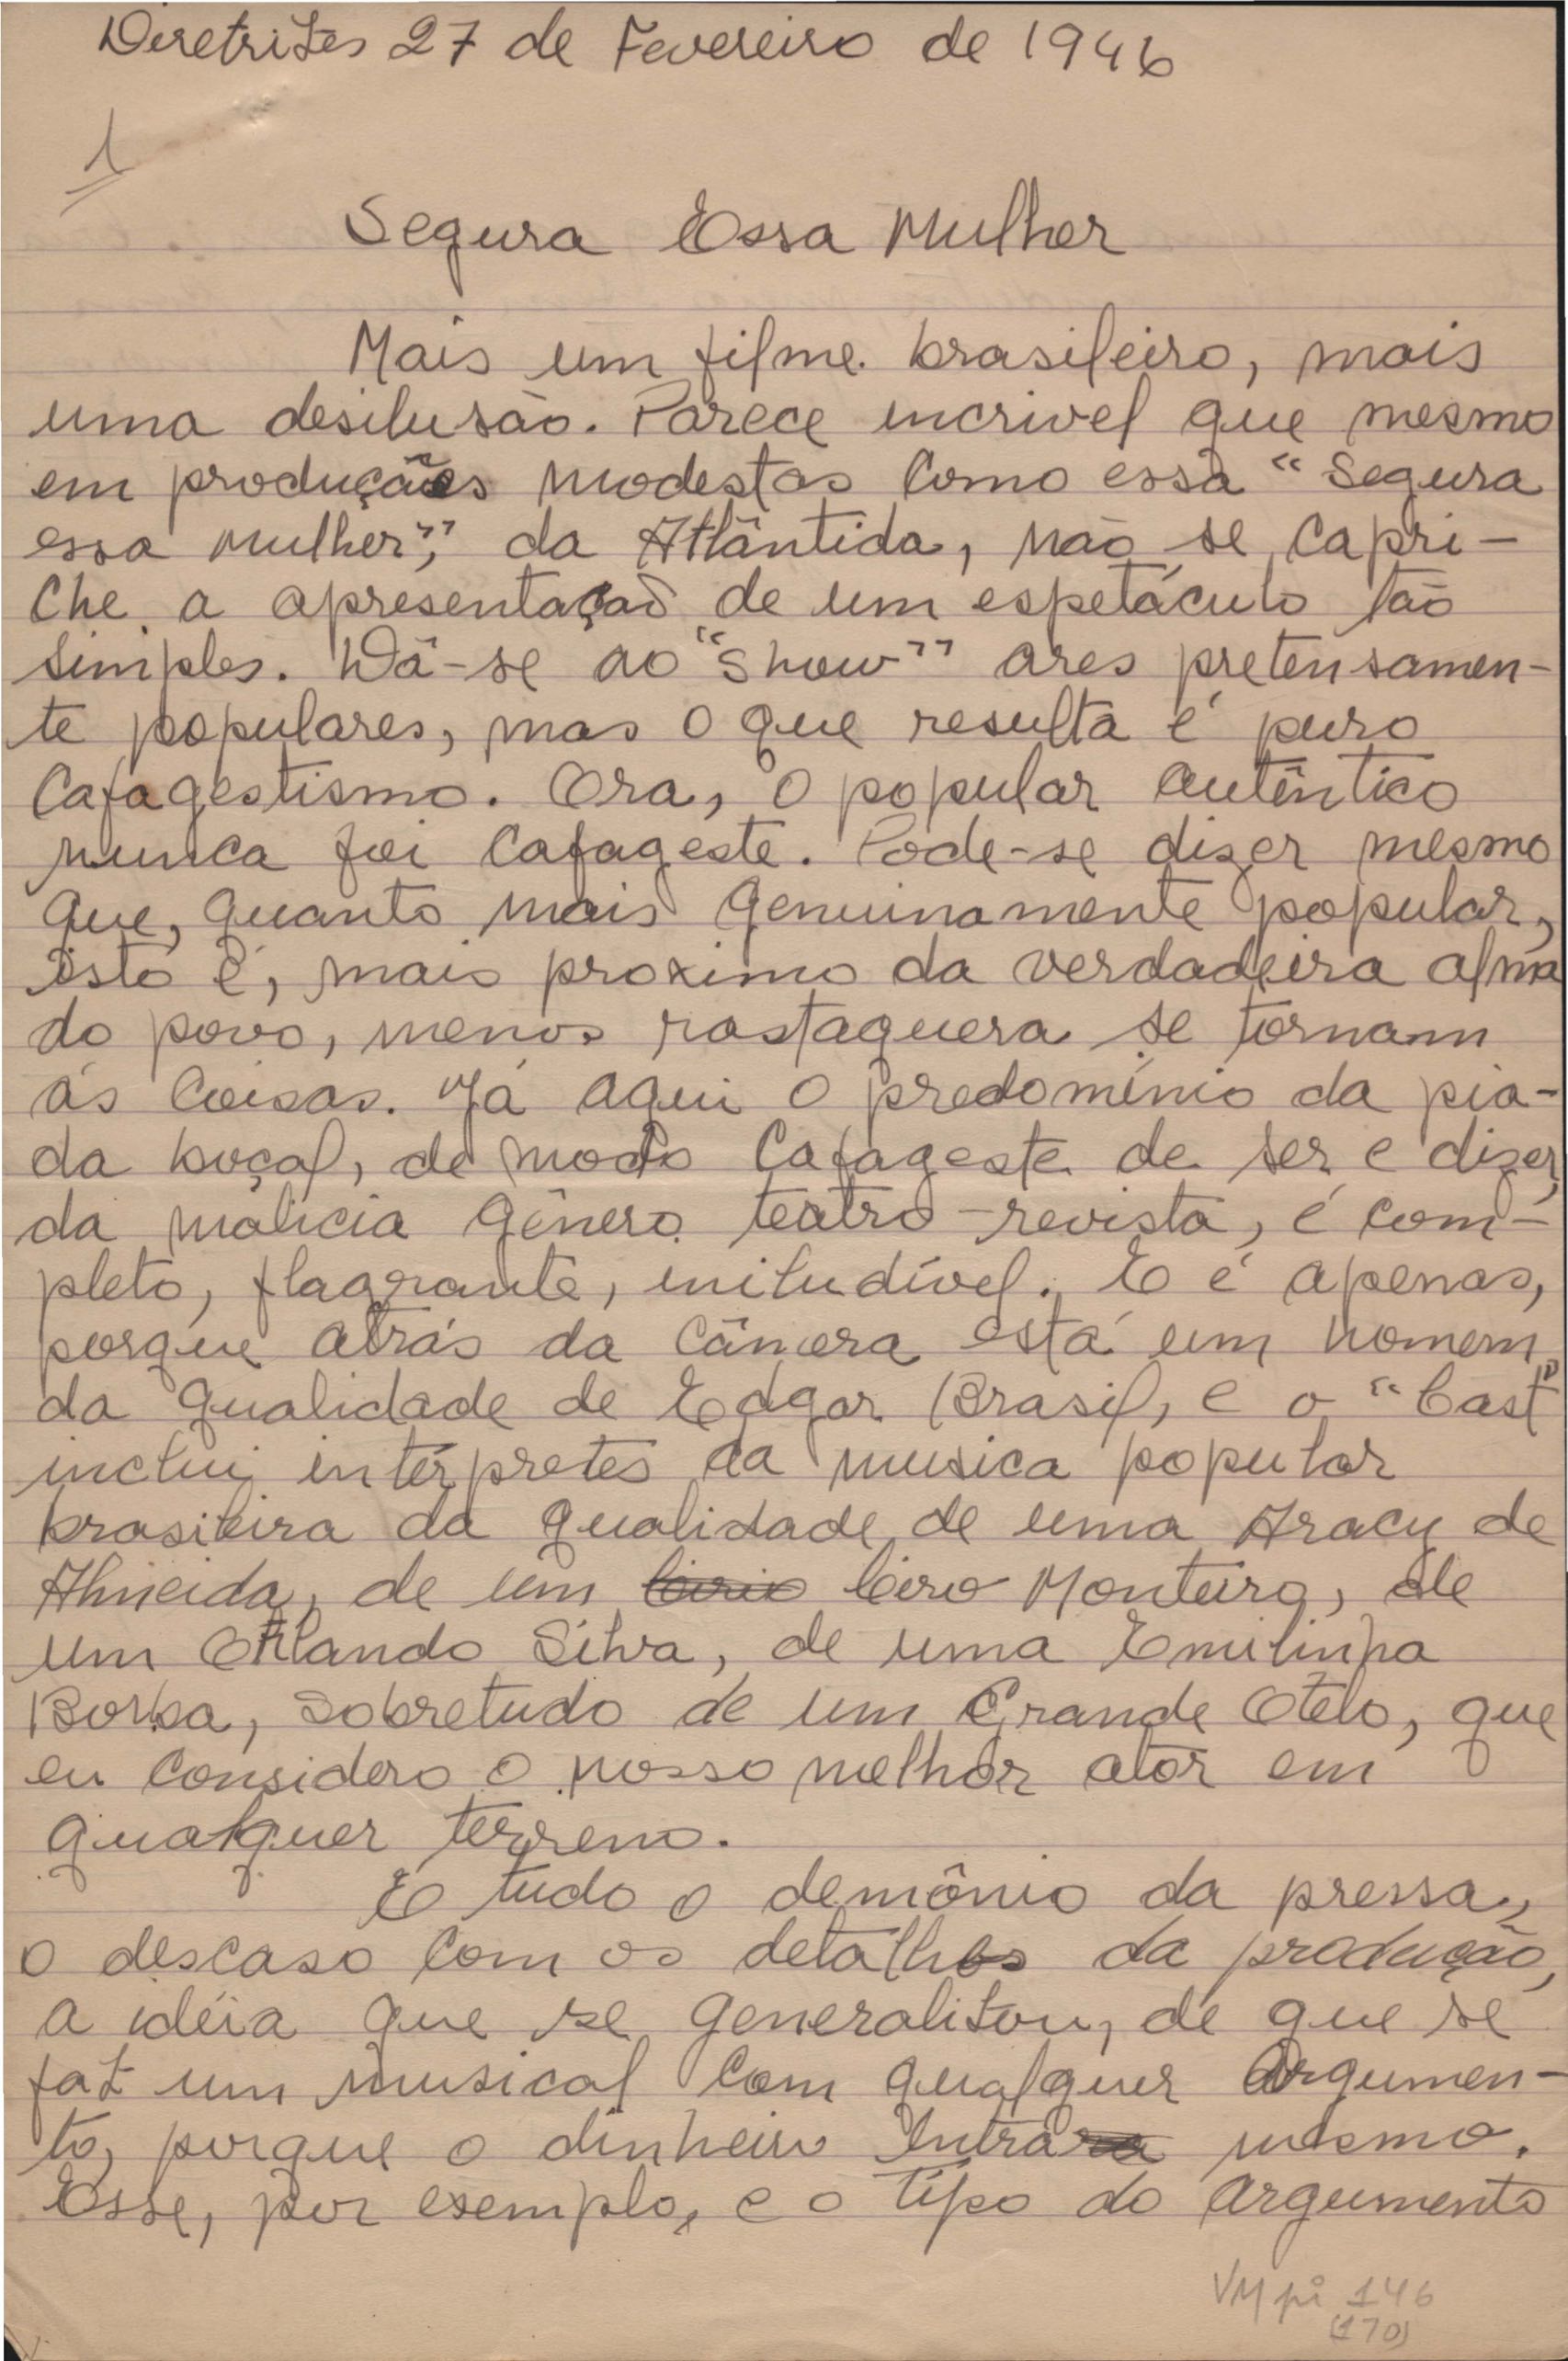 Diretrizes 27 de Fevereiro de 1946
1
Segura Essa Mulher
Mais um filme brasileiro, mais
uma desilusão. Parece incrivel que mesmo
em produções modestas como essa "Segura
essa mulher", da Atlântida, não se capri-
che a apresentação de um espetáculo tão
simples. Dá-se ao "show" ares pretensamen-
te populares, mas o que resulta é puro
cafagestismo. Ora, o popular autêntico
nunca foi cafageste. Pode-se dizer mesmo
que, quanto mais genuinamente popular,
isto é, mais proximo da verdadeira alma
do povo, menos rastaquera se tornam
as coisas. Já aqui o predomínio da pia-
da boçal, de modo cafageste de ser e dizer,
da malicia gênero teatro-revista, é com-
pleto, flagrante, iniludível. E é apenas,
porque atrás da câmera está um homem
da qualidade de Edgar Brasil, e o "Cast"
inclui intérpretes da musica popular
brasileira da qualidade de uma Aracy de
Almeida, de um Ciro Monteiro, de
um Orlando Silva, de uma Emilinha
Borba, sobretudo de um Grande Otelo, que
eu considero o nosso melhor ator em
qualquer terreno.
E tudo o demônio da pressa,
o descaso com os detalhes da produção,
a idéia que se generalizou, de que se
faz um musical com qualquer argumen-
to, porque o dinheiro entra mesmo.
Esse, por exemplo, e o tipo do argumento
VM pi 146
(170)